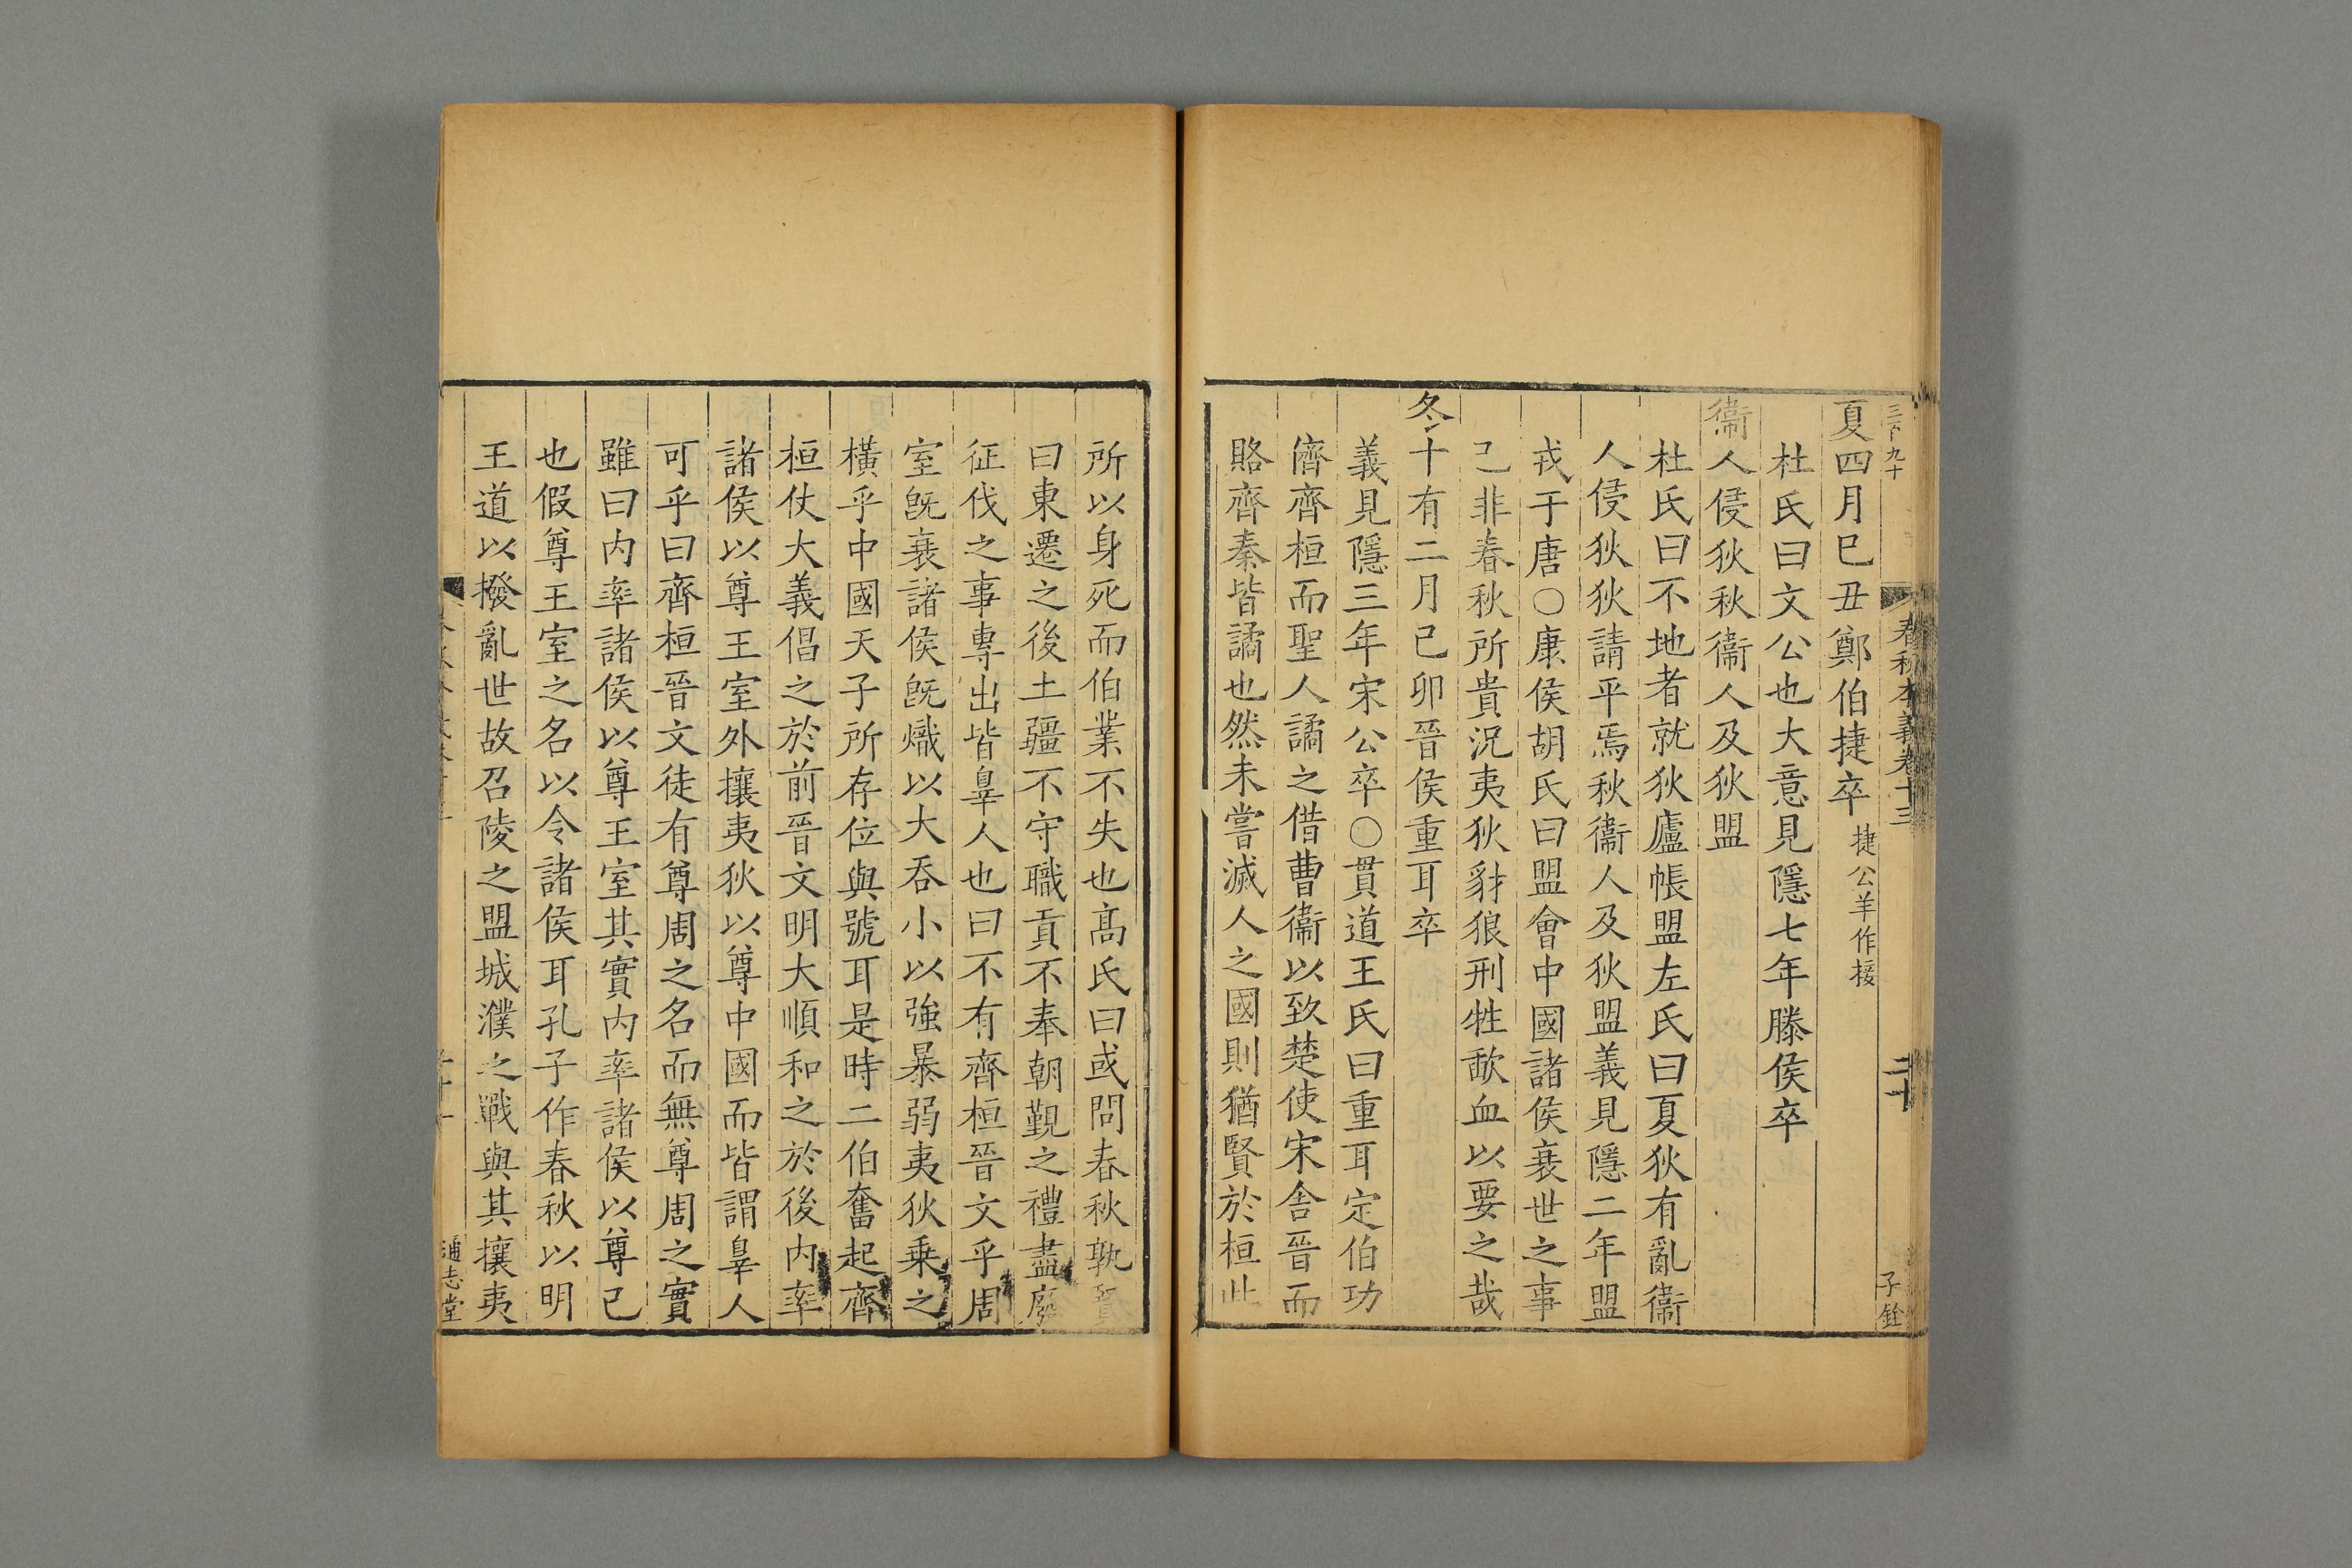 三百九十
春秋本義卷十三
二十
子銓
夏四月已丑鄭伯捷卒捷公羊作接
杜氏曰文公也大意見隱七年滕侯卒
衞人侵狄秋衞人及狄盟
杜氏曰不地者就狄狄廬帳盟左氏曰夏狄有亂衞
人侵狄狄請平焉秋衞人及狄盟義見隱二年盟
戎于唐○康侯胡氏曰盟會中國諸侯衰世之事
己非春秋所貴況夷狄豺狼刑牲歃血以要之哉
冬十有二月己卯晉侯重耳卒
義見隱三年宋公卒○貫道王氏曰重耳定伯功
儕齊桓而聖人譎之借曹衞以致楚使宋舍晉而
賂齊秦皆譎也然未嘗滅人之國則猶賢於桓此
所以身死而伯業不失也髙氏曰或問春秋孰賢
曰東遷之後土疆不守職貢不奉朝覲之禮盡廢
征伐之事專出皆辠人也曰不有齊桓晉文乎周
室旣衰諸侯旣熾以大吞小以強暴弱夷狄乗之
橫乎中國天子所存位與號耳是時二伯奮起齊
桓仗大義倡之於前晉文明大順和之於後内率
諸侯以尊王室外攘夷狄以尊中國而皆謂辠人
可乎曰齊桓晉文徒有尊周之名而無尊周之實
雖曰内率諸侯以尊王室其實内率諸侯以尊己
也假尊王室之名以令諸侯耳孔子作春秋以明
王道以撥亂世故召陵之盟城濮之戰與其攘夷
通志堂